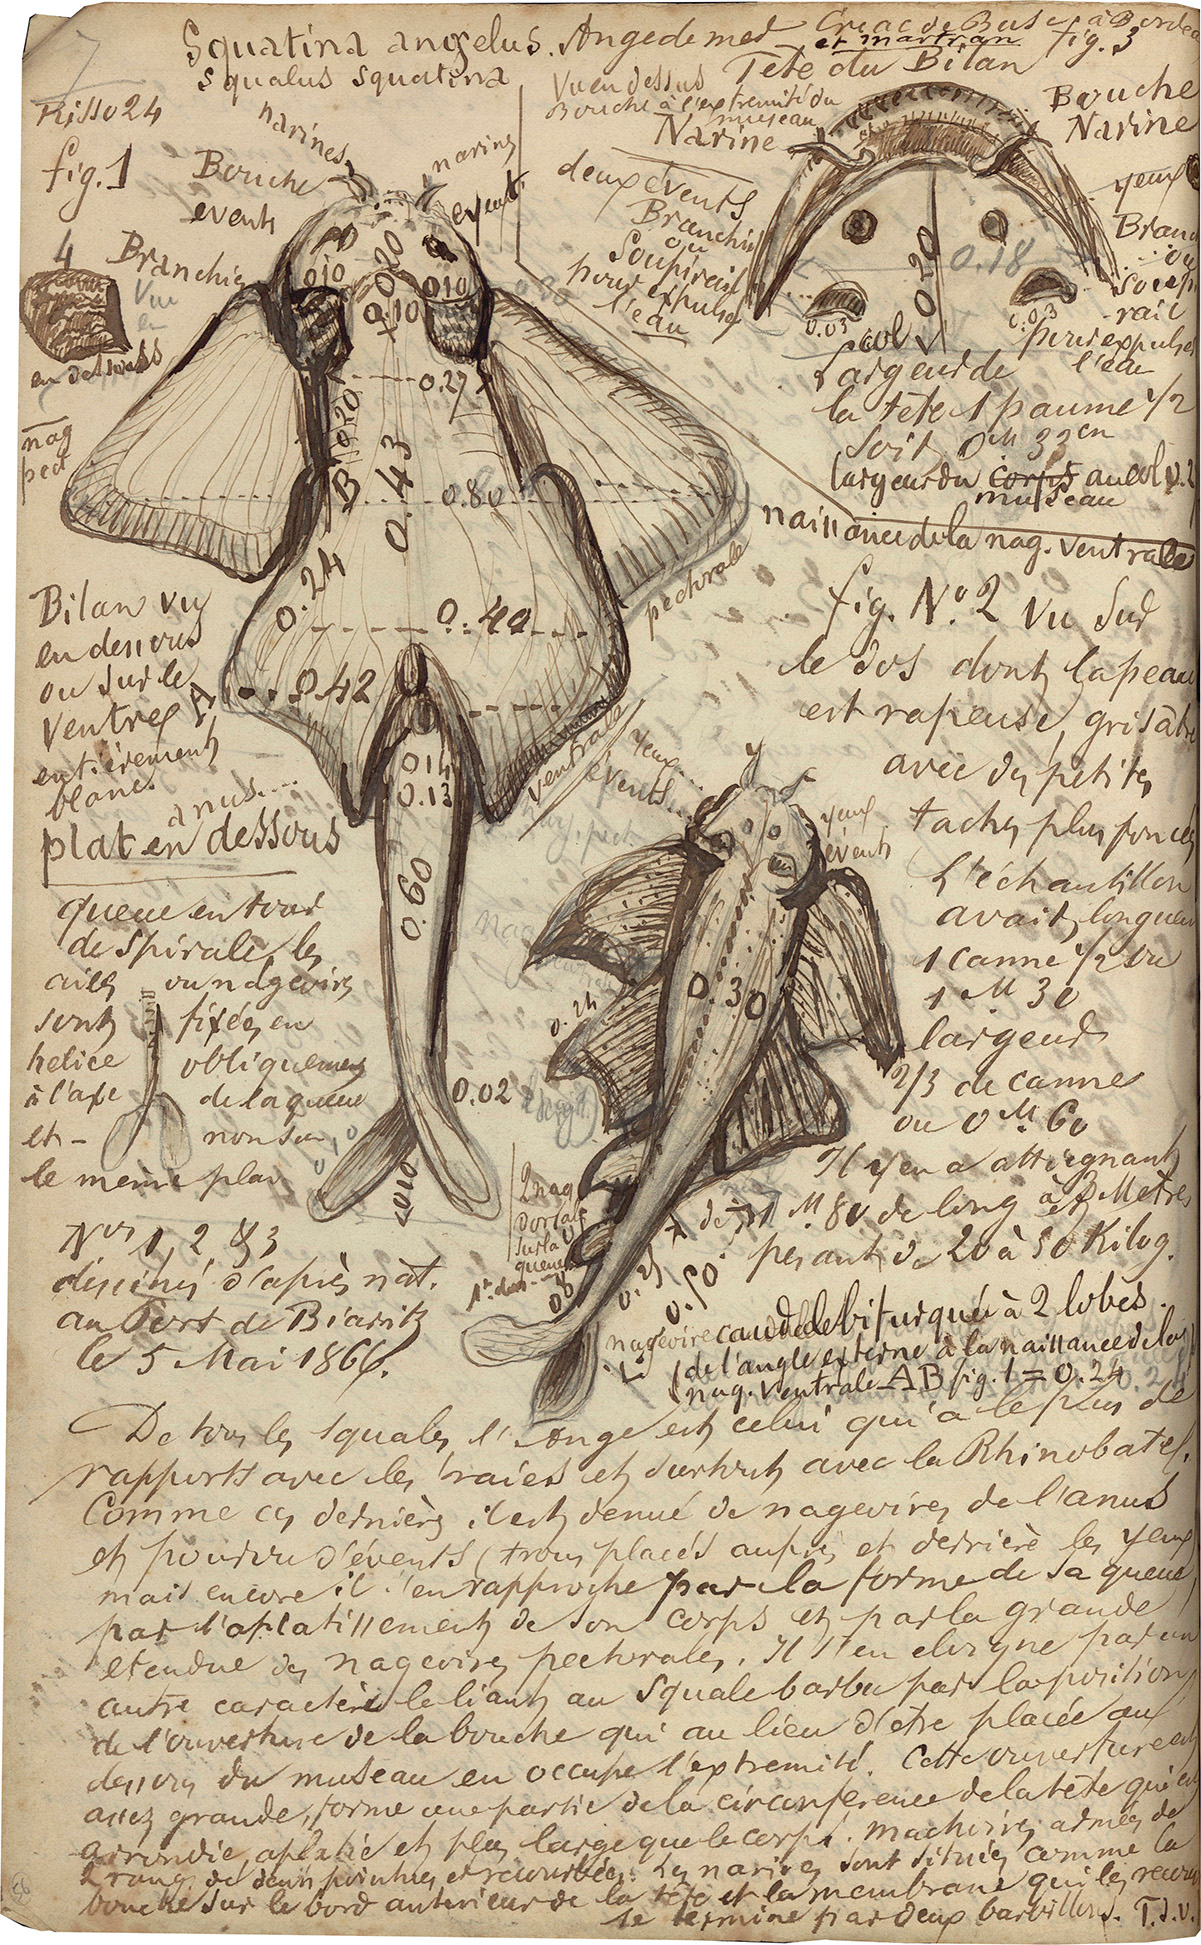 Squatina angelus. Ange de mer
squalus squatina
Creac de Buse à Bordea
et martran
fig. 3
Tête du Bilan
Risso 24
fig. 1
narines
Bouche
events
narines
event
4 Branchies
Vue
en
en dessous
nag
pect
Vu en dessus
Bouche à l'extremité du
museau
Narine
deux évents
Branchies
ou
Soupirail
pour expulser
l'eau
Bouche
Narine
yeux
Branc
ou
soupi
rail
pour expulser
l'eau
0.20
0.18
0.03
0.03
col
Largeur de
la tête 1 paume 1/2
soit 0 M 33 cen
largeur du corps au col
museau
naissance de la nag. ventrale
010
0.20
010
0.10
0.27
0.20
B
0.43
0.80
0.24
0.40
0.42
A
014
0.13
0.60
0.02
010
pectorale
ventrale
Bilan vu
en dessous
ou sur le
ventre
entièrement
blanc.
anus
plat en dessous
queue en tour
de spirale, les
ailes ou nageoires
sont fixées en
helice obliquement
à l'axe de la queue
et - non sur
le même plan
Nos 1, 2 & 3
dessinés d'après nat.
au Port de Biaritz
le 5 Mai 1866.
fig. No. 2 vu sur
le dos dont la peau
est rapeuse, grisâtre
avec des petites
taches plus foncées
L'échantillon
avait longueur
1 canne 1/2 ou
1 M 30
largeur
2/3 de canne
ou 0 M. 60
Il y en a atteignant
de 1 M. 80 de long à 2 Metres
pesant de 20 à 30 Kilog.
yeux
évents
yeux
évents
0.30
0.24
2 nag
dorsales
sur la
queue
nageoire caudale bifurquée à 2 lobes.
(de l'angle externe à la naissance de la
nag. ventrale AB fig. 1 = 0.24
De tous les squales, l'Ange est celui qui a le plus de
rapports avec les raies et surtout avec la Rhinobate.
Comme ces dernières il est denué de nageoires de l'anus
et pourvu d'évents (trous placés auprès et derrière les yeux
mais encore il s'en rapproche par la forme de sa queue,
par l'aplatissement de son corps et par la grande
etendue des nageoires pectorales. Il s'en eloigne par un
autre caractère le liant au squale barbu par la position
de l'ouverture de la bouche qui au lieu d'être placée au
dessous du museau en occupe l'extremité. Cette ouverture est
assez grande, forme une partie de la circonference de la tête qui est
arrondie, aplatie et plus large que le corps. machoires armées de
rangs de dents pointues et recourbées. Les narines sont situées comme la
bouche sur le bord anterieur de la tête et la membrane qui les recouvre
se termine par deux barbillons. T.J.V.